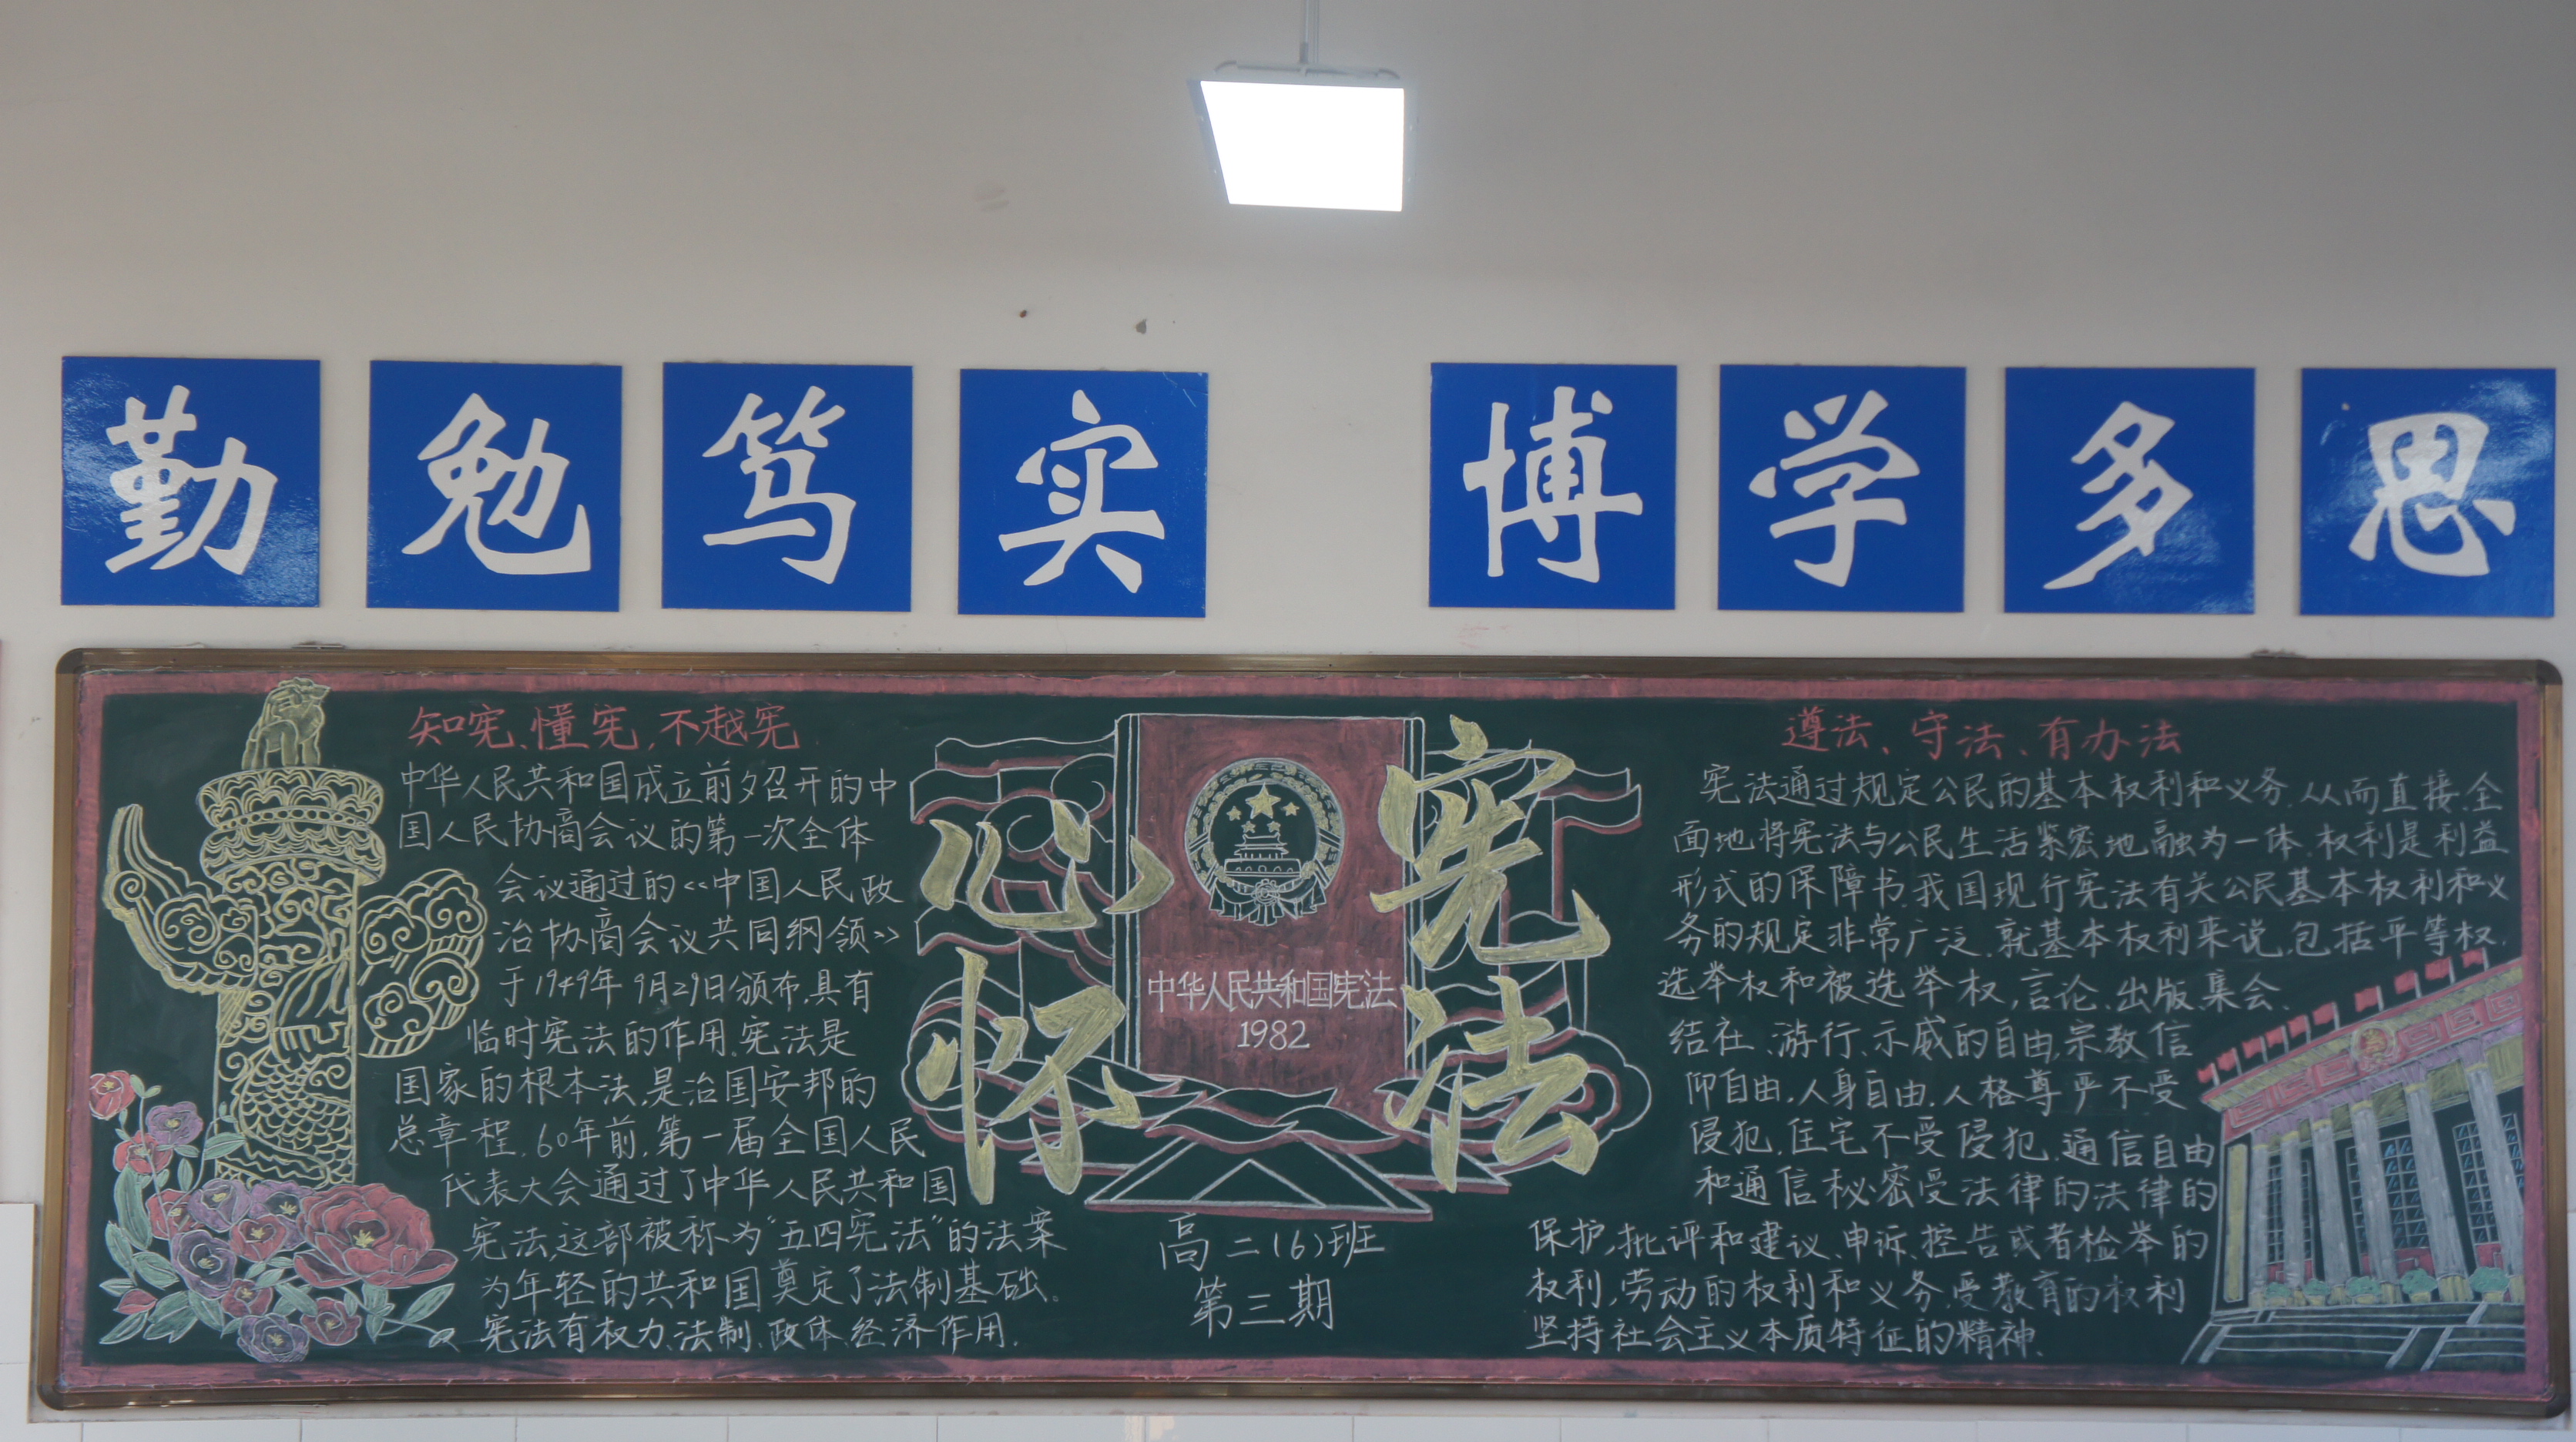 勤勉笃实 博学多思
知宪、懂宪,不越宪.
中华人民共和国成立前夕召开的中
国人民协商会议的第一次全体
会议通过的<<中国人民政
治协商会议共同纲领>>
于1949年9月29日颁布,具有
临时宪法的作用.宪法是
国家的根本法,是治国安邦的
总章程.60年前,第一届全国人民
代表大会通过了中华人民共和国
宪法,这部被称为“五四宪法”的法案
为年轻的共和国奠定了法制基础。
宪法有权力、法制、政体、经济作用.
心怀
宪法
中华人民共和国宪法
1982
高二(6)班
第三期
遵法、守法、有办法
宪法通过规定公民的基本权利和义务.从而直接、全
面地将宪法与公民生活紧密地融为一体.权利是利益
形式的保障书.我国现行宪法有关公民基本权利和义
务的规定非常广泛.就基本权利来说,包括平等权.
选举权和被选举权,言论、出版、集会、
结社、游行、示威的自由,宗教信
仰自由,人身自由.人格尊严不受
侵犯,住宅不受侵犯.通信自由
和通信秘密受法律的法律的
保护,批评和建议、申诉、控告或者检举的
权利,劳动的权利和义务,受教育的权利
坚持社会主义本质特征的精神.